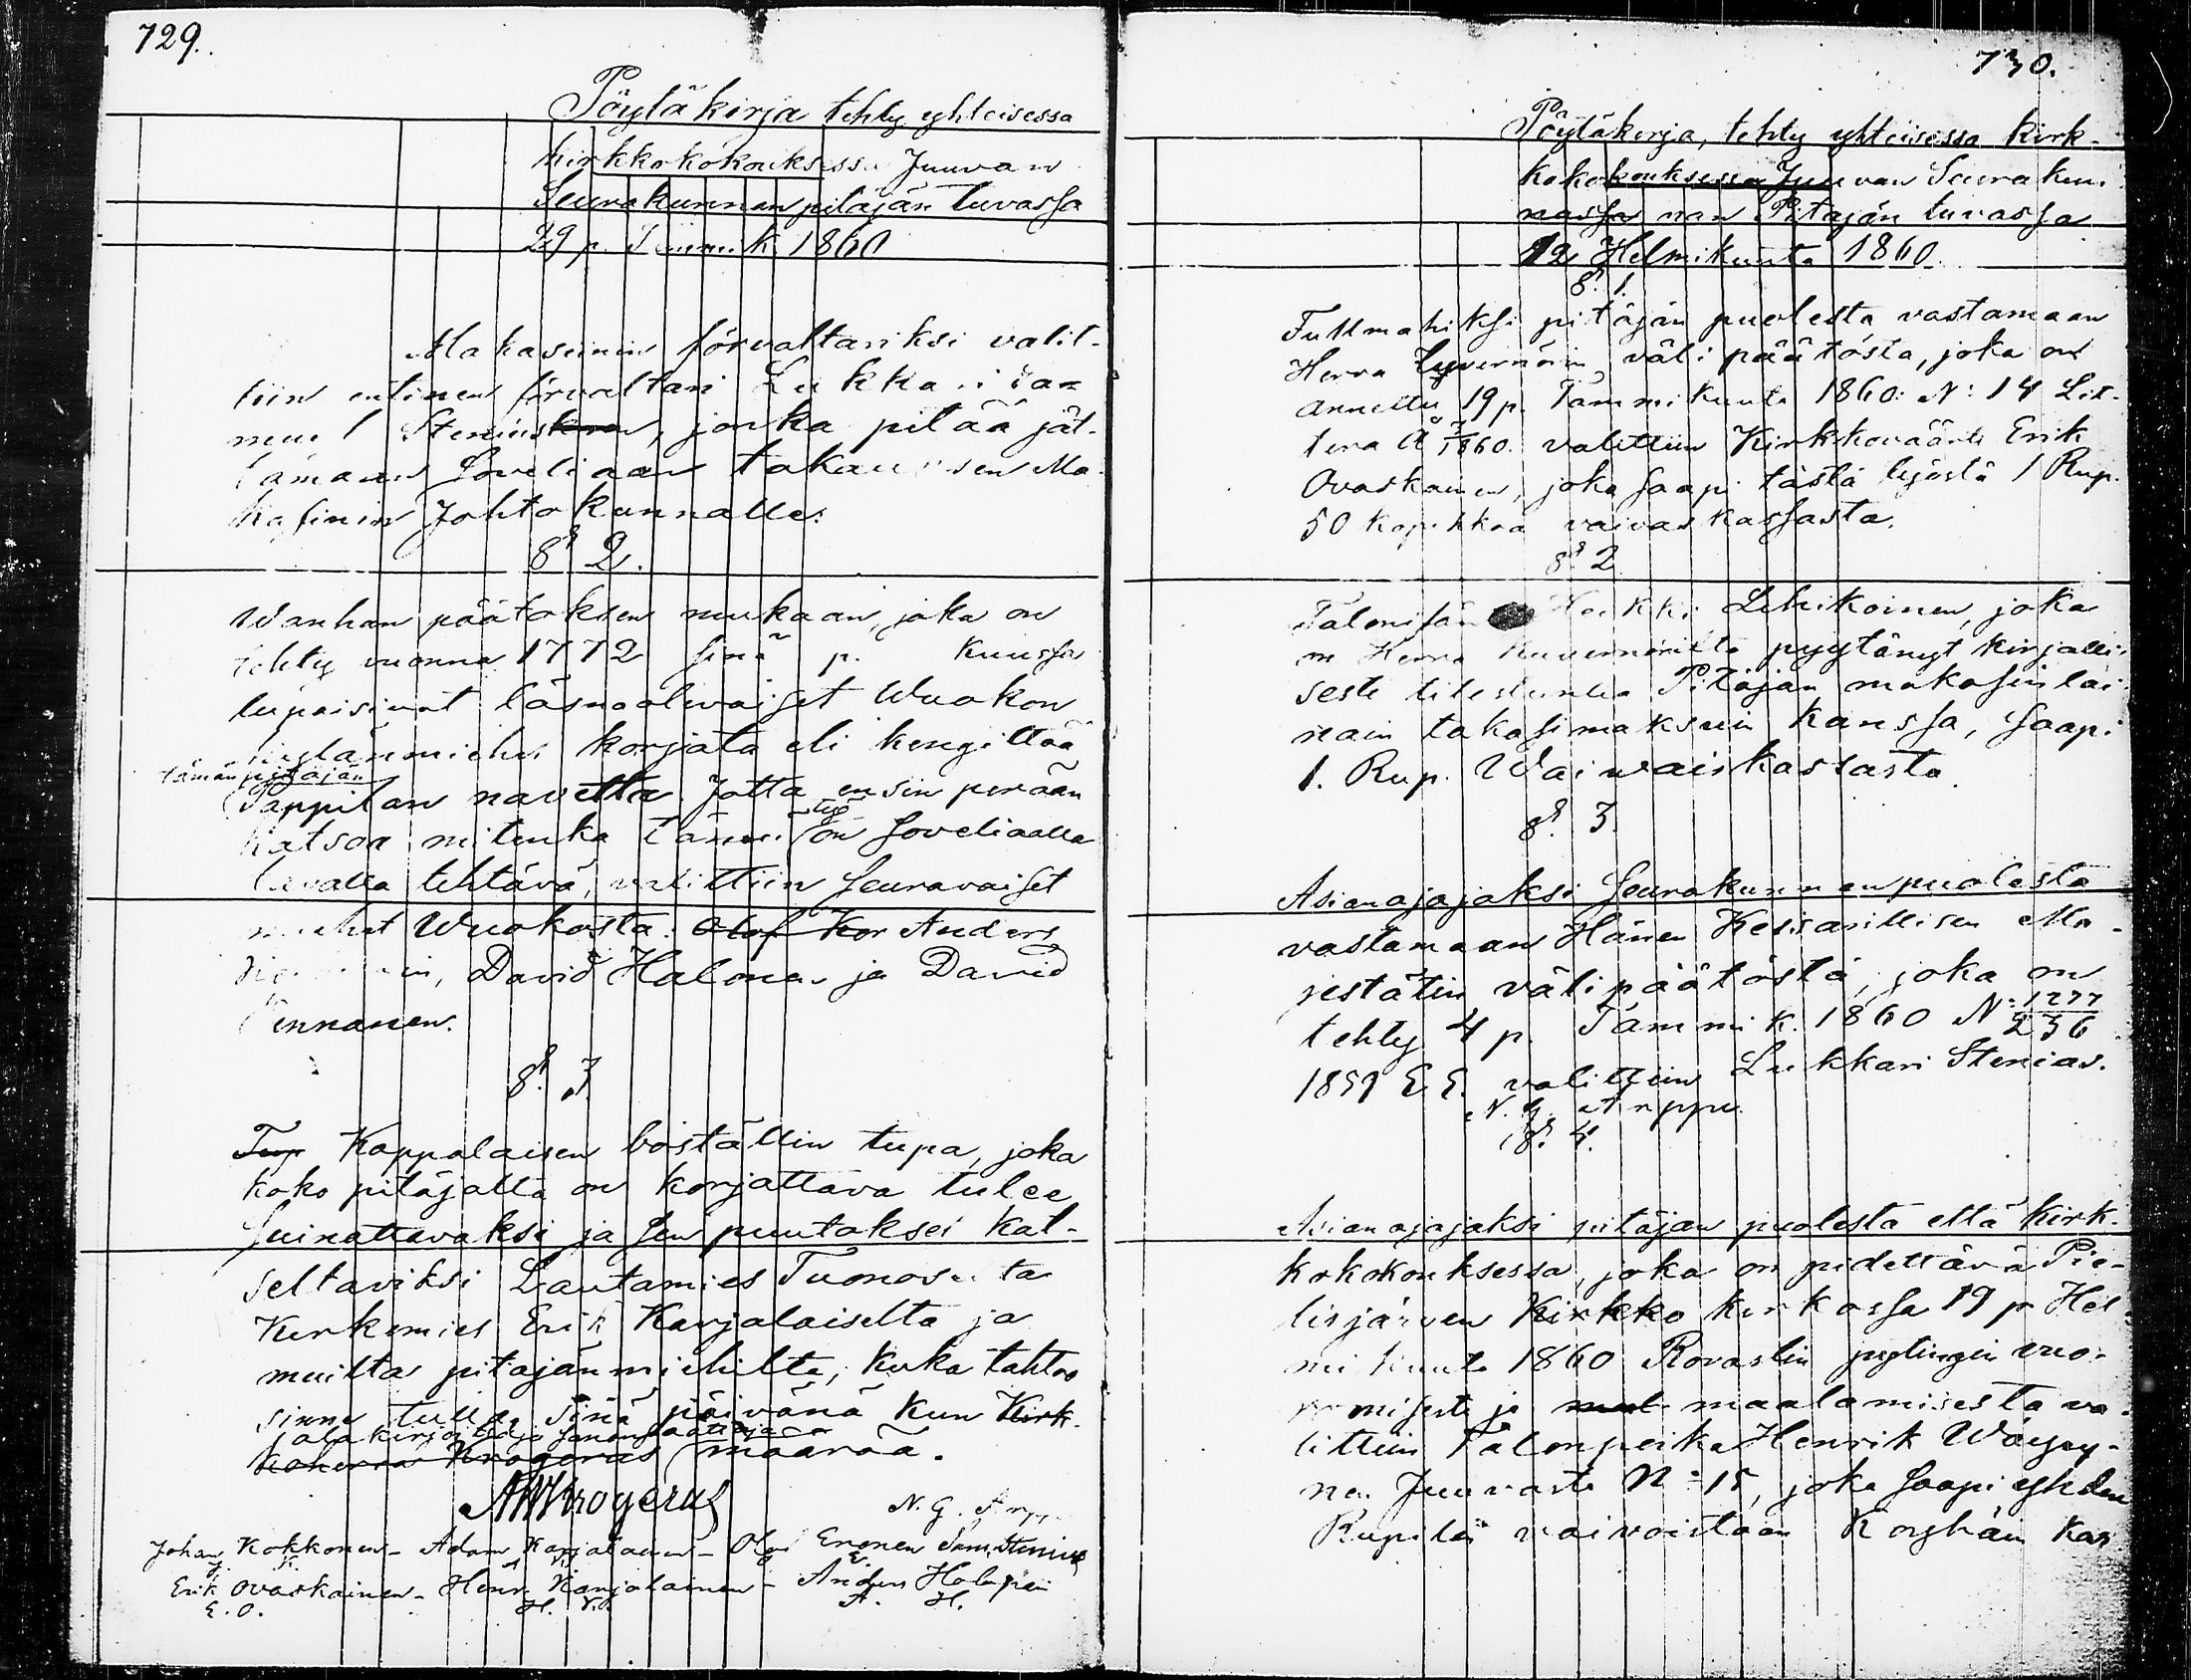 729.
Pöytäkirja tehty yhteisessa
kirkkokokouksessa Juuvan
Seurakunnan pitäjän tuvassa
29 p. Tammik. 1860
Makaseinin förvaltariksi valit-
tiin entinen förvaltari Lukkari Sa
muel Stenius, jonka pitää jät-
tämään soveliaan takauksen Ma
kasinin Johtokunnalle.
§ 2.
Wanhan päätöksen mukaan, joka on
tehty vuonna 1772 sinä p. kuussa
lupaisivat läsnäolevaiset Wuokon
miehet korjata eli hengittää
tämän pitäjän
Pappilan navetta. Jotta ensin perään
työ
katsoa mitenkä tämä on soveliaalla
tavalla tehtävä, valittiin seuravaiset
miehet Wuokosta: Olof Kor Anders
David Halonen ja David
Kinnanen.
§ 3
Tup Kappalaisen böställin tupa, joka
koko pitäjältä on korjattava tulee
seinattavaksi ja sen puutokset kat-
seltaviksi Lautamies Tuonosesta
Kirkemies Erik Karjalaiselta ja
muilta pitäjänmiehiltä, kuka tahtoo
sinne tulla, sinä päivänä kun Kirk-
jalakirjoittaja sanansaattaja
koherra Krogerus määrää.
AWKrogerus
N. G. Arppe
Johan Kokkonen - Adam Karjalainen - Olof Eronen Sam. Stenius
J. K. A. K. E.
Erik Ovaskainen - Henr. Karjalainen - Anders Holopain
E. O. H. K. A. H.
730.
Pöytäkirja, tehty yhteisessa Kirk-
kokokouksessa Juuvan Seurakun-
nassa nan Pitäjän tuvassa
12 Helmikuuta 1860.
§ 1.
Fullmahiksi pitäjän puolesta vastamaan
Herra Guvernörin väli päätöstä, joka on
annettu 19 p. Tammikuuta 1860: N: 14 Lit-
tera A 1860. valittiin Kirkkoväärti Erik
Ovaskainen, joka saapi tästä työstä 1 Rup.
50 kopekkaa vaivaskassasta.
§ 2
Talonisän Heikki Lehikoinen, joka
on Herra kuvernöriltä pyytänyt kirjalli-
sesti Pitäjän makasin lai-
nain takasimaksuin kanssa, saapi
1. Rup. Waiwaiskassasta.
§ 3.
Asianajajaksi seurakunnan puolesta
vastamaan Hänen Keisarillisen Ma-
jestätin välipäätöstä, joka on
tehty 4 p. Tammik. 1860 N: 1277/236
1859 E.E. valittiin Lukkari Stenius.
N. G. Arppe.
§ 4.
Asianajajaksi pitäjän puolesta että kirk-
kokokouksessa, joka on pidettävä Pie-
lisjärven Kirkko kirkossa 19 p Hel-
mi kuuta 1860 Rovastin pytingin vuo-
raamisesta ja mal maalamisesta va-
littiin Talonpoika Henrik Wäyry-
nen Juuvasta N: 15, joka saapi yhden
Ruplan vaivaistaan Kas